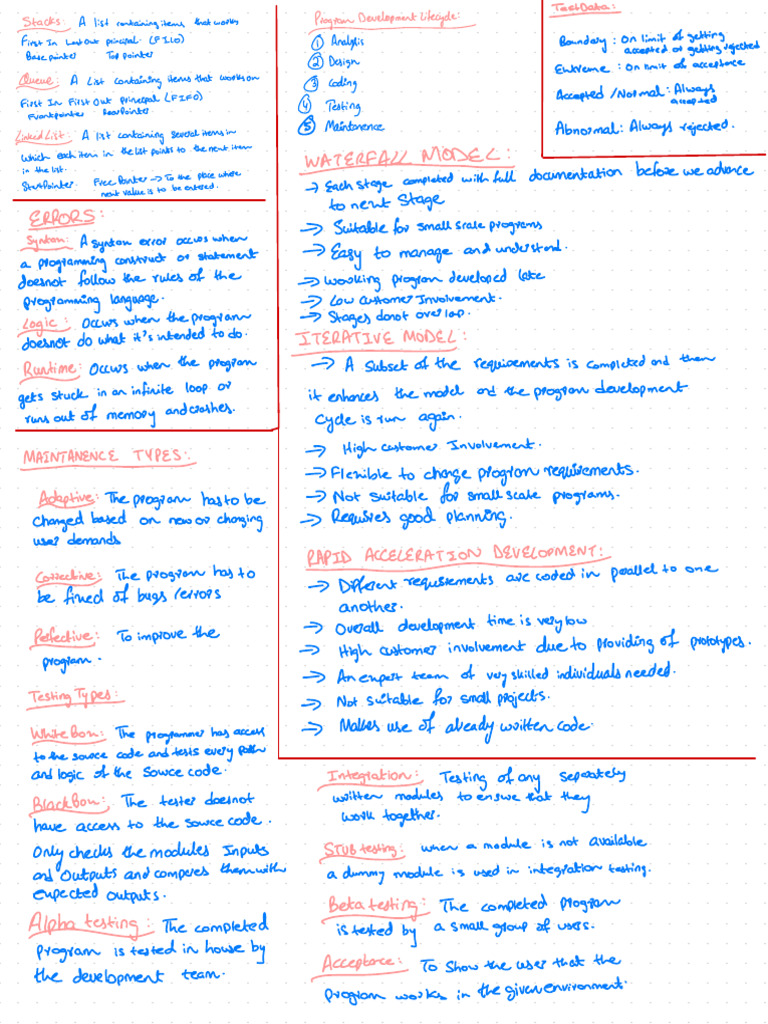 Stacks: A list containing items that works
First In Last Out principal (FILO)
Base pointer Top pointer
Queue: A List containing items that works on
First In First Out principal (FIFO)
Frontpointer RearPointer
Linked List: A list containing several items in
which each item in the list points to the next item
in the list.
StartPointer. Free Pointer → To the place where
next value is to be entered.
ERRORS:
Syntax: A syntax error occurs when
a programming construct or statement
doesnot follow the rules of the
programming language.
Logic: Occurs when the program
doesnot do what it's intended to do.
Runtime: Occurs when the program
gets stuck in an infinite loop or
runs out of memory and crashes.
MAINTANENCE TYPES:
Adaptive: The program has to be
changed based on new or changing
user demands
Corrective: The program has to
be fixed of bugs/errors
Perfective: To improve the
program.
Testing Types:
White Box: The programmer has access
to the source code and tests every path
and logic of the source code.
Black Box: The tester doesnot
have access to the source code.
Only checks the modules Inputs
and Outputs and compares them with
expected outputs.
Alpha testing: The completed
program is tested in house by
the development team.
Program Development Lifecycle:
① Analysis
② Design
③ Coding
④ Testing
⑤ Maintenence
WATERFALL MODEL:
→ Each stage completed with full documentation before we advance
to next stage
→ Suitable for small scale programs
→ Easy to manage and understand.
→ Working program developed late
→ Low customer Involvement.
→ Stages donot overlap.
ITERATIVE MODEL:
→ A subset of the requirements is completed and then
it enhances the model and the program development
cycle is run again.
→ High customer Involvement.
→ Flexible to change program requirements.
→ Not suitable for small scale programs.
→ Requires good planning.
RAPID ACCELERATION DEVELOPMENT:
→ Different requirements are coded in parallel to one
another.
→ Overall development time is very low
→ High customer involvement due to providing of prototypes.
→ An expert team of very skilled individuals needed.
→ Not suitable for small projects.
→ Makes use of already written code.
Test Data:
Boundary: On limit of getting
accepted or getting rejected
Extreme: On limit of acceptance
Accepted/Normal: Always
accepted
Abnormal: Always rejected.
Integration: Testing of any seperately
written modules to ensure that they
work together.
STUB testing: when a module is not available
a dummy module is used in integration testing.
Beta testing: The completed program
is tested by a small group of users.
Acceptance: To show the user that the
program works in the given environment.